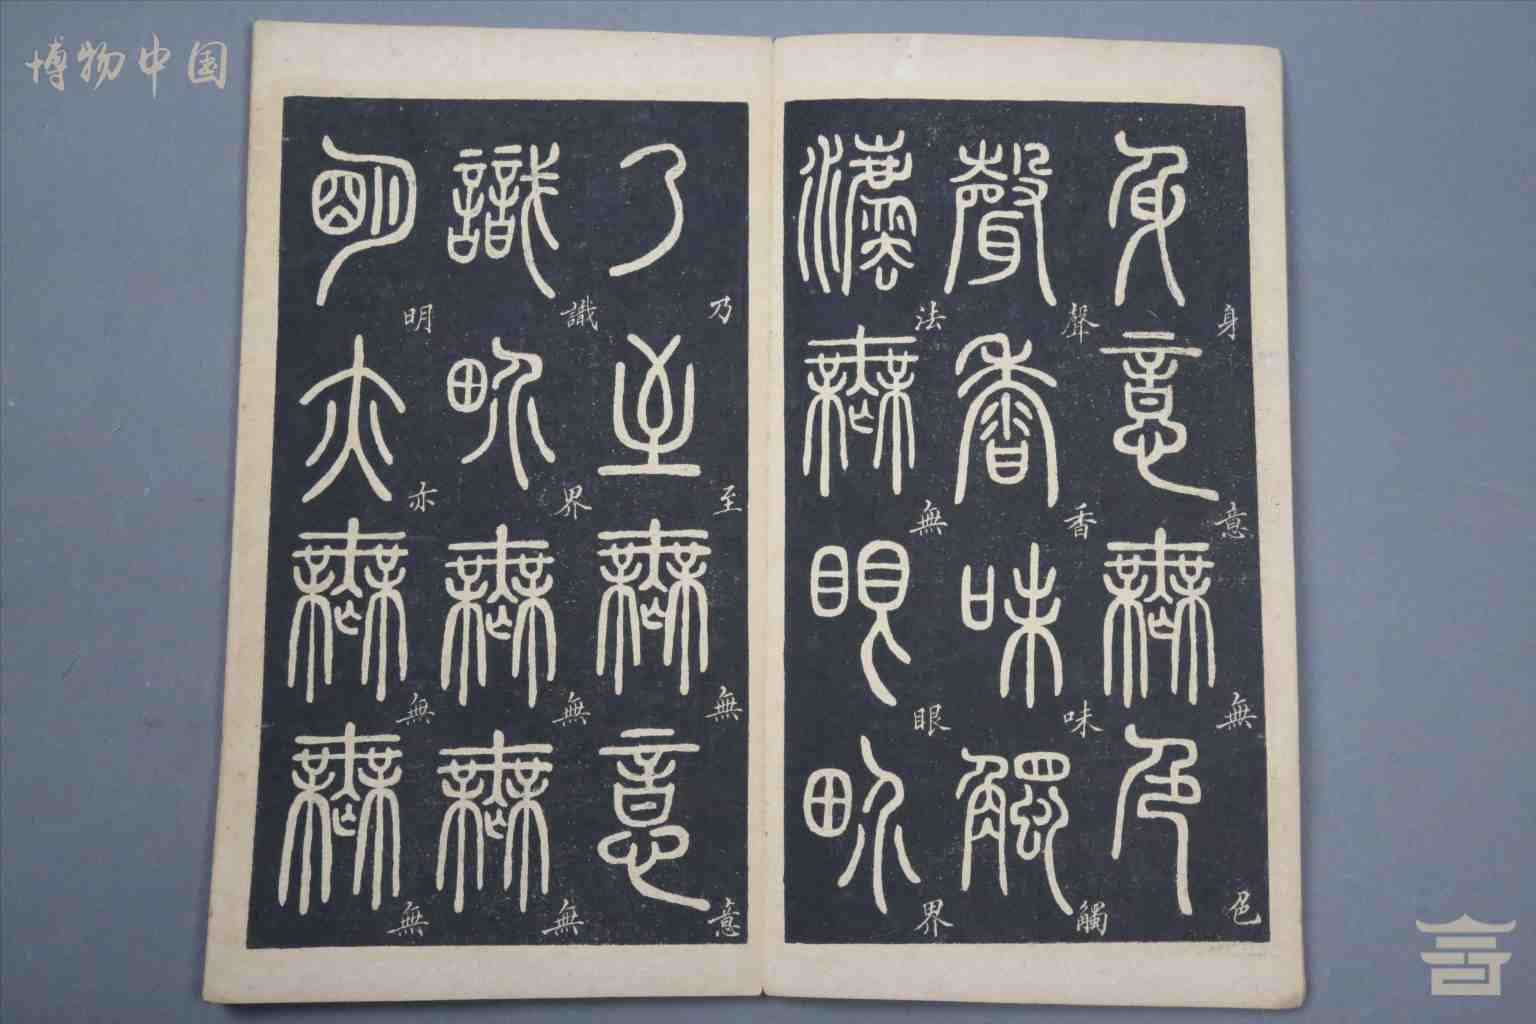 博物中国
身意無色
身意無色
聲香味觸
聲香味觸
灋無眼界
法無眼界
乃至無意
乃至無意
識界無無
識界無無
明亦無無
明亦無無